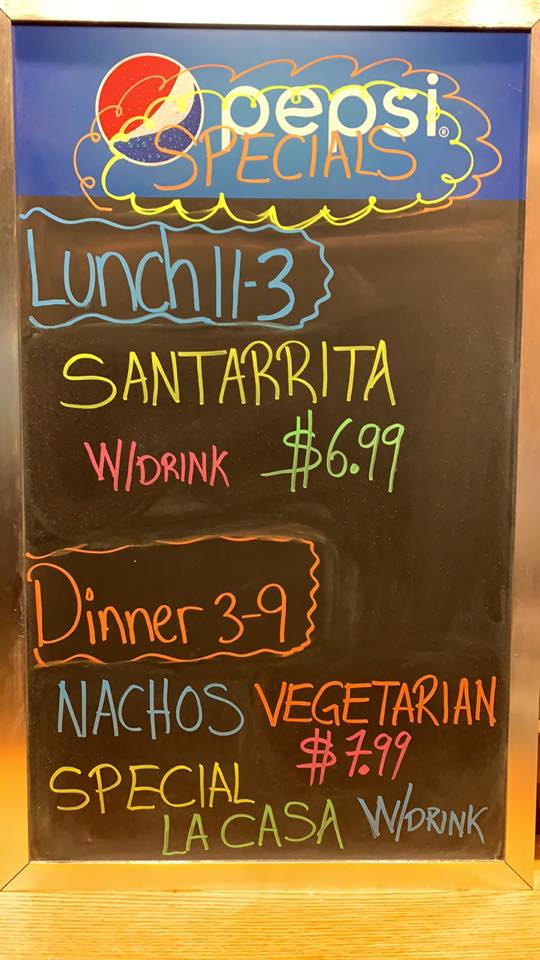 pepsi®
SPECIALS
Lunch 11-3
SANTARRITA
W/DRINK $6.99
Dinner 3-9
NACHOS VEGETARIAN
$7.99
SPECIAL
LA CASA W/DRINK